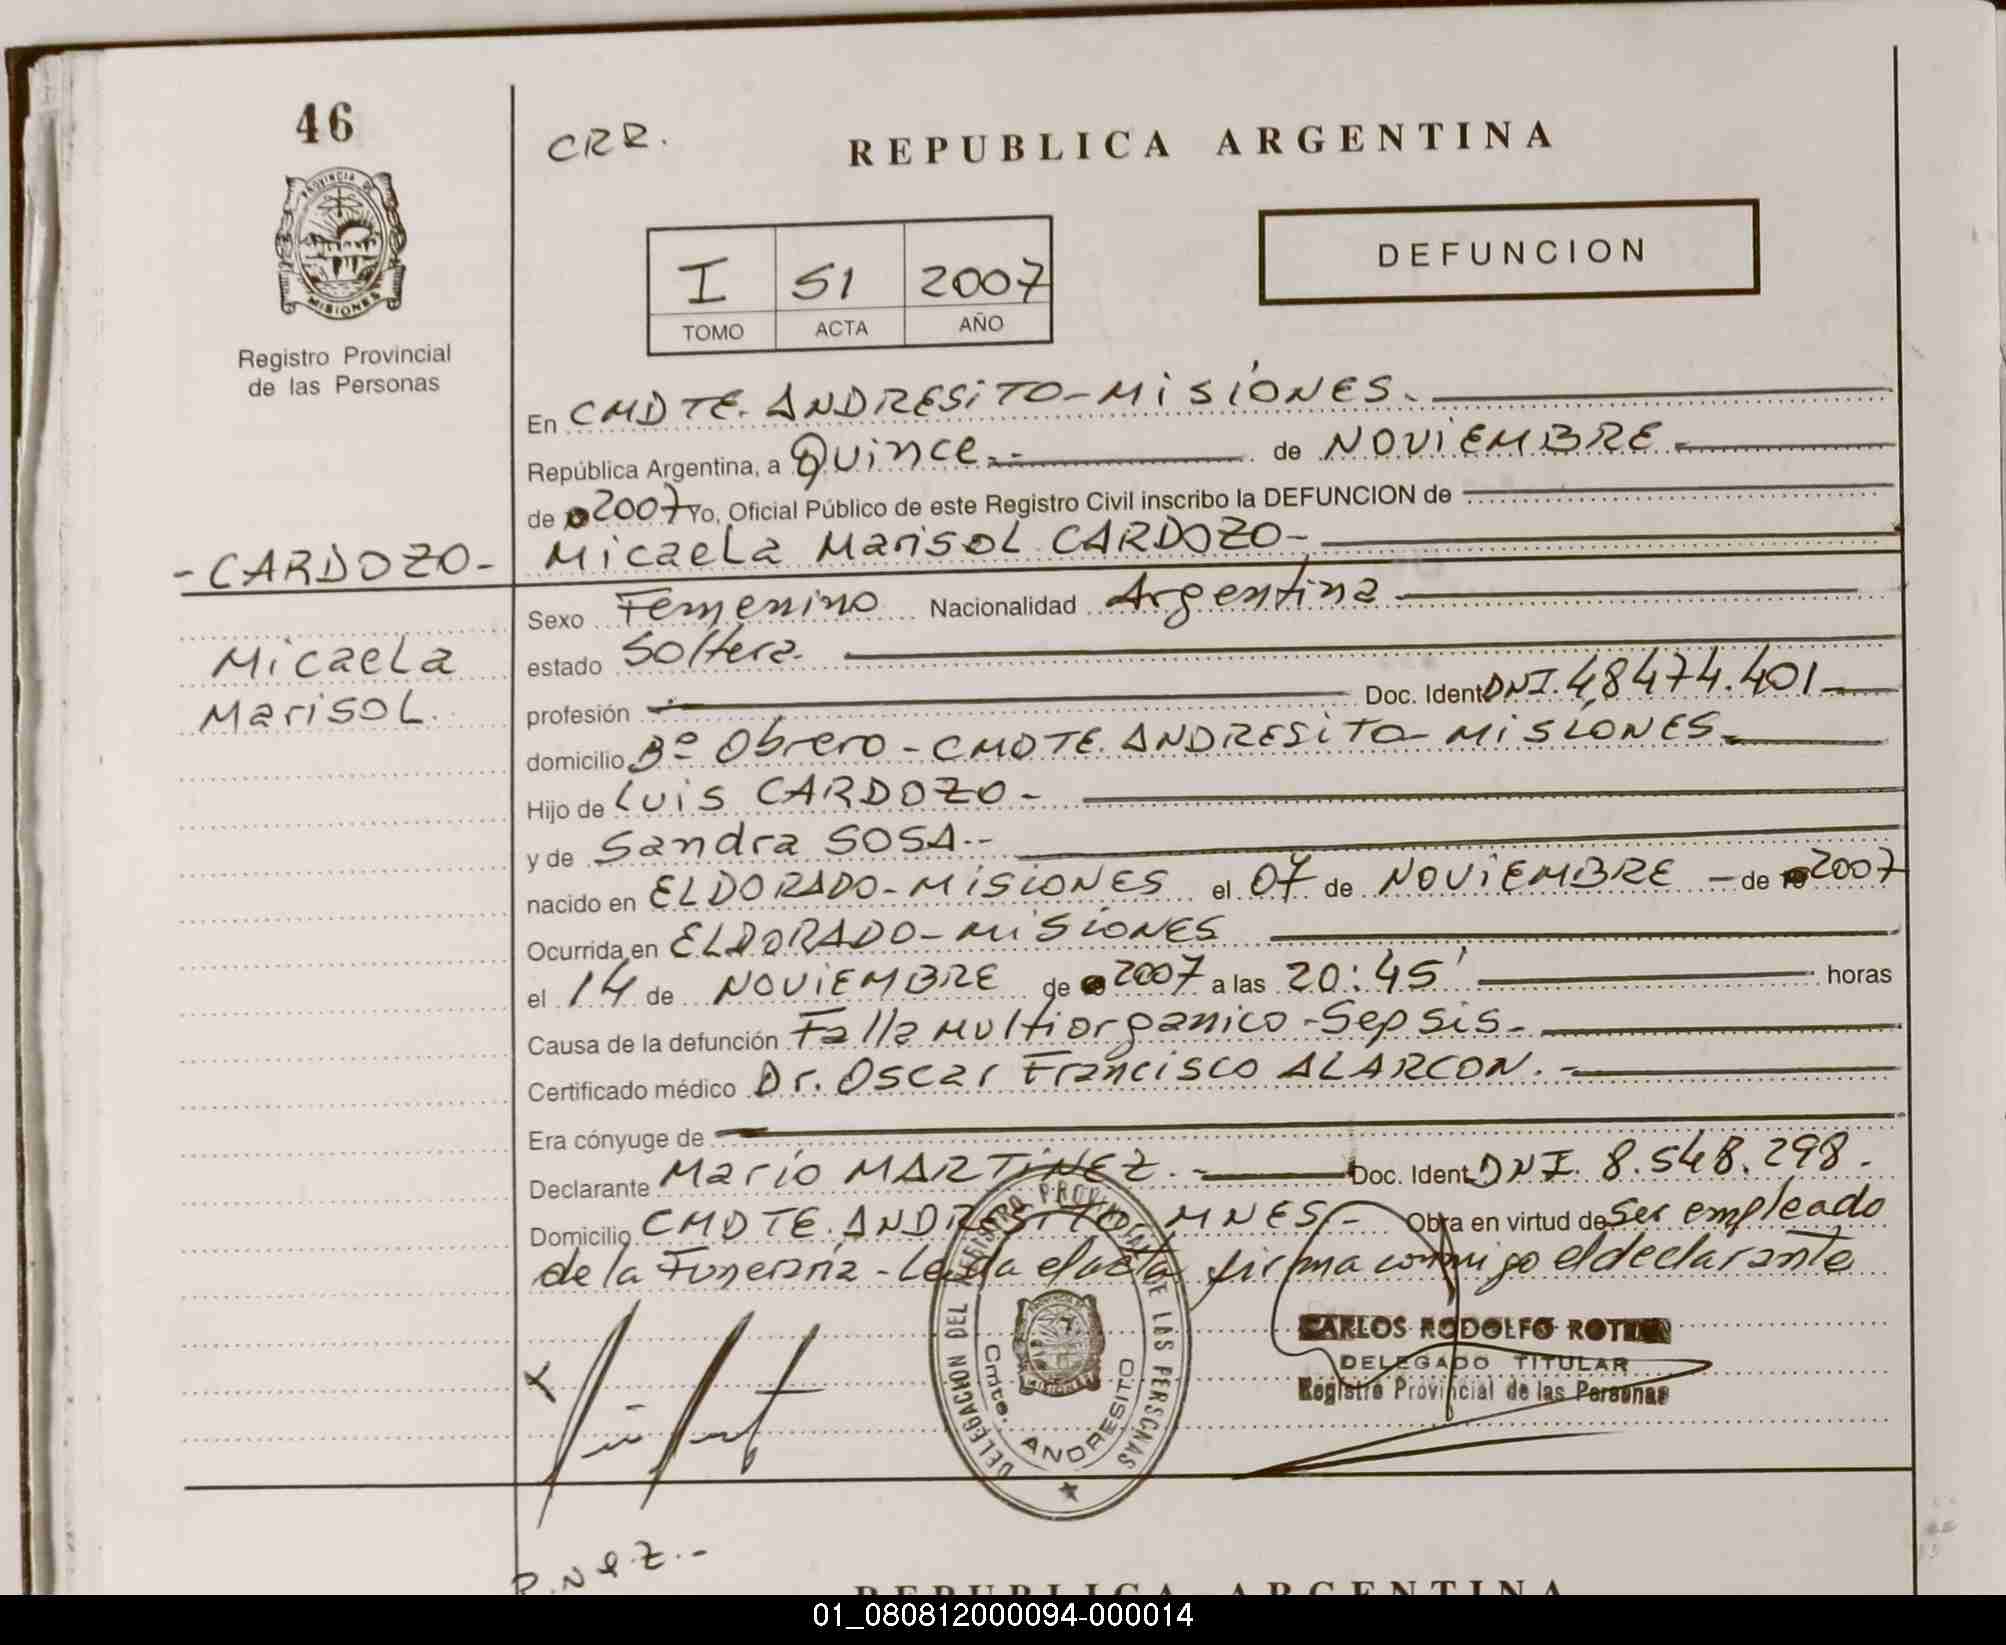 46
CRR.
REPUBLICA ARGENTINA
PROVINCIA DE
MISIONES
Registro Provincial
de las Personas
I 51 2007
TOMO ACTA AÑO
DEFUNCION
En CMDTE. ANDRESiTO-MiSiONES.
República Argentina, a Quince.- de NOViEMBRE.
de 2007 Yo, Oficial Público de este Registro Civil inscribo la DEFUNCION de
-CARDOZO- Micaela Marisol CARDOZO-
Sexo Femenino Nacionalidad Argentina
Micaela
Marisol.
estado Soltera.
profesión Doc. Ident. DNI. 48474.401
domicilio Bº Obrero - CMDTE. ANDRESiTO- MiSiONES.
Hijo de Luis CARDOZO-
y de Sandra SOSA.-
nacido en ELDORADO-MiSiONES el 07 de NOViEMBRE - de 2007
Ocurrida en ELDORADO-MiSiONES
el 14 de NOViEMBRE de 2007 a las 20:45' horas
Causa de la defunción Falla multiorganico-Sepsis.
Certificado médico Dr. Oscar Francisco ALARCON.-
Era cónyuge de
Declarante Mario MARTiNEZ.- Doc. Ident. DNI. 8.548.298.
Domicilio CMDTE. ANDRESiTO, MNES.- Obra en virtud de Ser empleado
de la Funeraria - Leida el acta firma conmigo el declarante
DELEGACION DEL REGISTRO PROVINCIAL DE LAS PERSONAS
PROVINCIA DE
MISIONES
Cmte. ANDRESITO
CARLOS RODOLFO
DELEGADO TITULAR
Registro Provincial de las Personas
REPUBLICA ARGENTINA
01_080812000094-000014